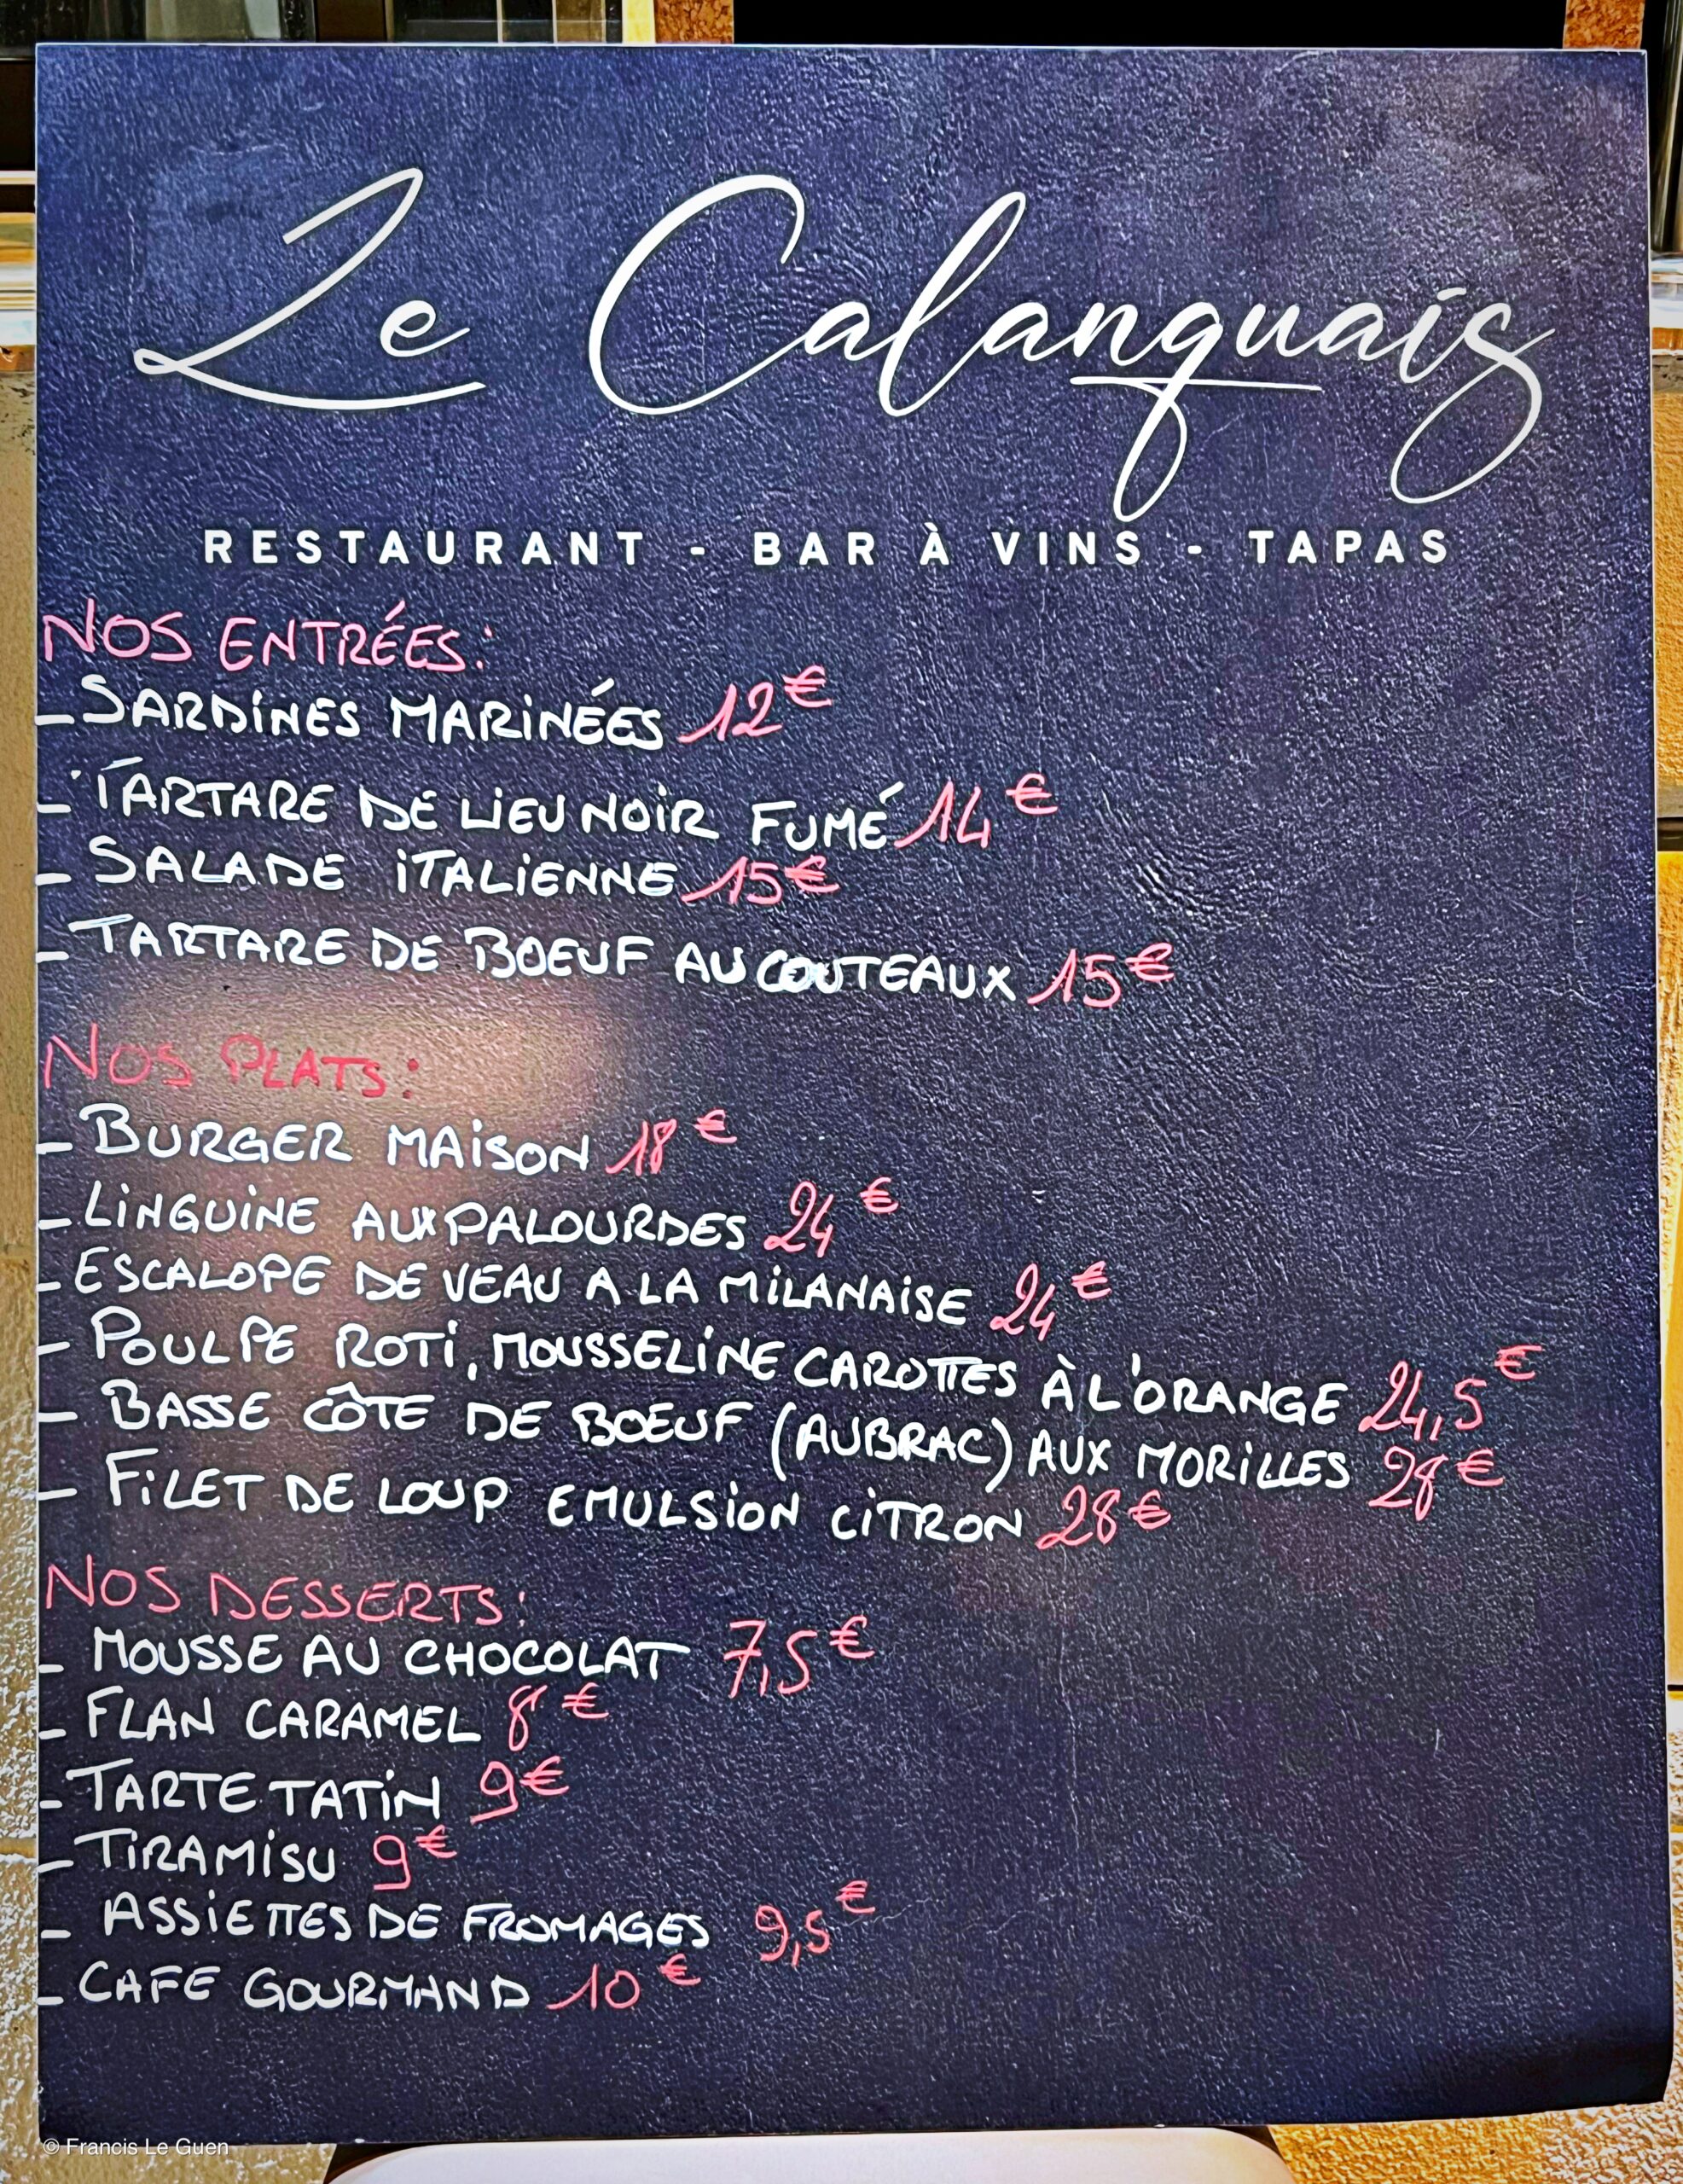 Le Calanquais
RESTAURANT - BAR À VINS - TAPAS
NOS ENTRÉES:
- SARDINES MARINÉES 12€
- TARTARE DE LIEU NOIR FUMÉ 14€
- SALADE ITALIENNE 15€
- TARTARE DE BOEUF AU COUTEAUX 15€
NOS PLATS:
- BURGER MAISON 18€
- LINGUINE AUX PALOURDES 24€
- ESCALOPE DE VEAU A LA MILANAISE 24€
- POULPE ROTI, MOUSSELINE CAROTTES À L'ORANGE 24,5€
- BASSE CÔTE DE BOEUF (AUBRAC) AUX MORILLES 28€
- FILET DE LOUP EMULSION CITRON 28€
NOS DESSERTS:
- MOUSSE AU CHOCOLAT 7,5€
- FLAN CARAMEL 8€
- TARTE TATIN 9€
- TIRAMISU 9€
- ASSIETTES DE FROMAGES 9,5€
- CAFE GOURMAND 10€
© Francis Le Guen